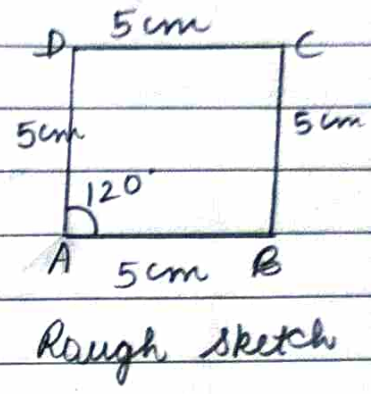 5 cm
D C
5cm 5 cm
120°
A B
5 cm
Rough sketch